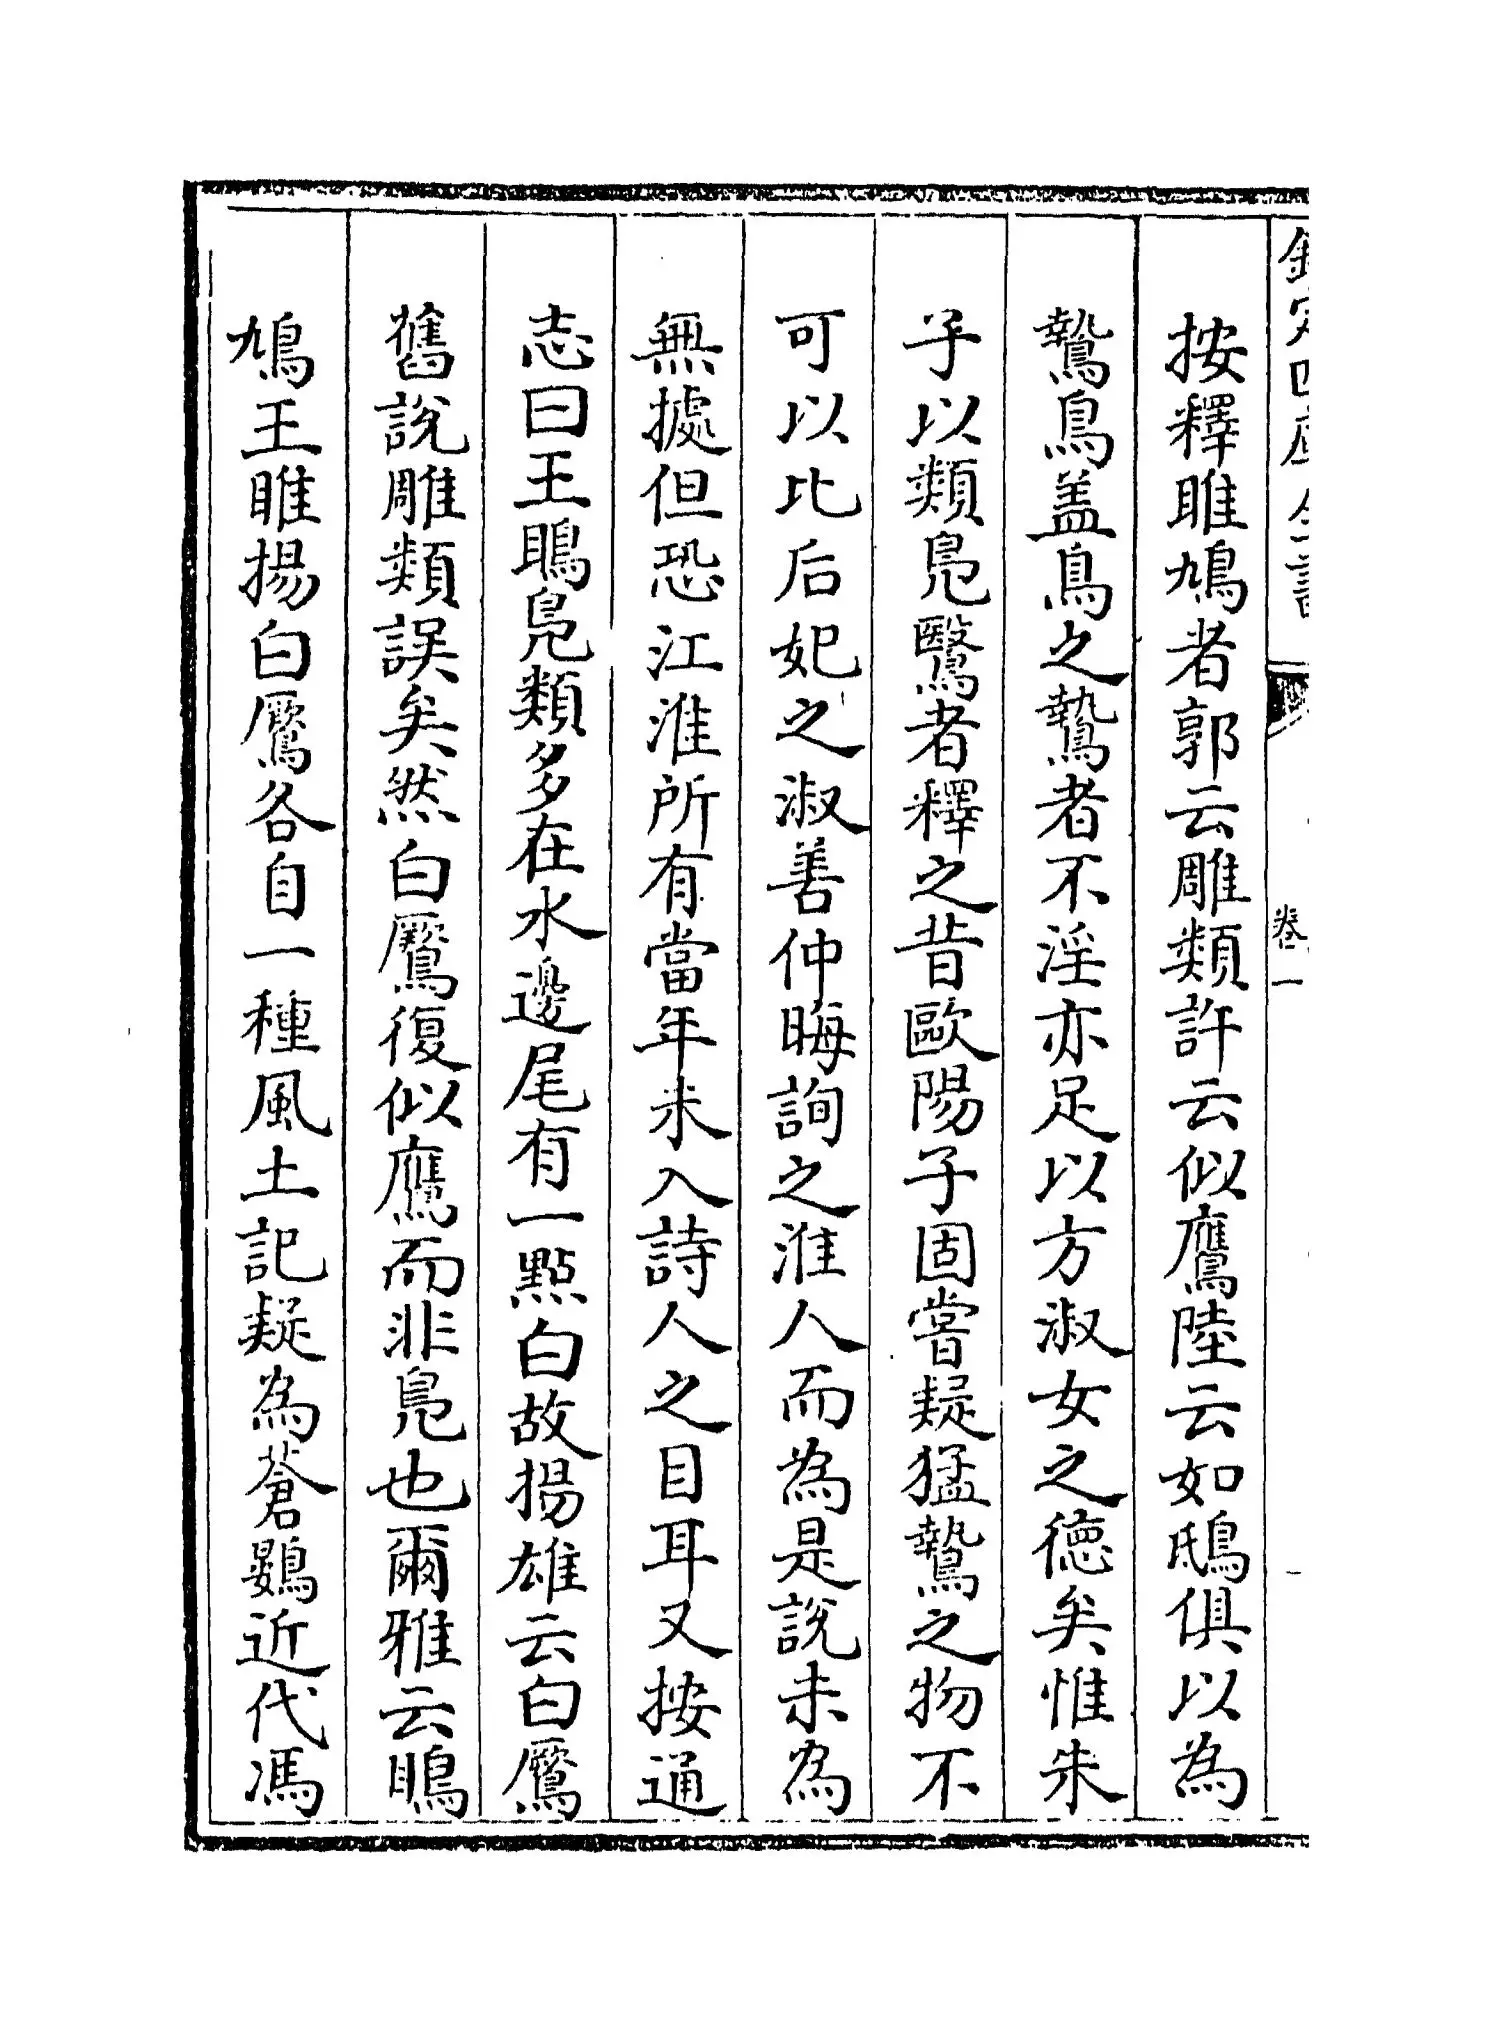 欽定四庫全書
卷一
按釋雎鳩者郭云雕類許云似鷹陸云如鴟俱以為
鷙鳥盖鳥之鷙者不淫亦足以方淑女之德矣惟朱
子以類鳧鷖者釋之昔歐陽子固嘗疑猛鷙之物不
可以比后妃之淑善仲晦詢之淮人而為是說未為
無據但恐江淮所有當年未入詩人之目耳又按通
志曰王鴡鳧類多在水邊尾有一點白故揚雄云白鷢
舊說雕類誤矣然白鷢復似鷹而非鳧也爾雅云鴡
鳩王雎揚白鷢各自一種風土記疑為蒼鷃近代馮